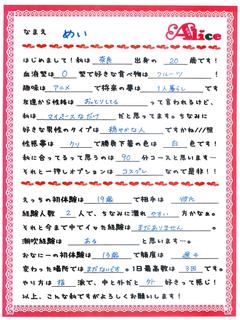 Alice
なまえ めい
はじめまして！私は 奈良 出身の 20 歳です！
血液型は O 型で好きな食べ物は フルーツ ！
趣味は アニメ で将来の夢は 1人暮らし です
友達から性格は おっとりしてる って言われるけど、
私は マイペースなだけ だと思ってます。ちなみに
好きな男性のタイプは 穏やかな人 ですかね///照
性感帯は クリ で勝負下着の色は 白 色です！
私に会ってするって思うのは 90 分コースと思います…
それと一押しオプションは コスプレ なので是非！！
えっちの初体験は 19歳 で相手は
経験人数 2 人で、ちなみに濡れ やすい 方かなぁ。
それと今まで中でイッた経験は まだありません 。
潮吹経験は ある と思います…。
変わった場所では まだないです 。1日最高数は 3回 です。
やり方は 指 派で、中と外だと 外 好きって感じ！
以上、こんな私ですがよろしくお願いします！